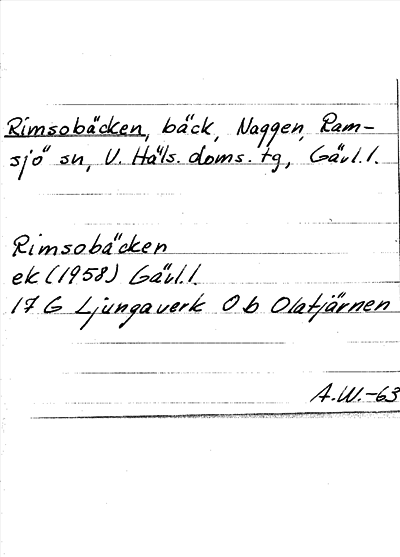 Rimsobäcken, bäck, Naggen, Ram-
sjö sn, V. Häls. doms. tg, Gävl. l.
Rimsobäcken
ek (1958) Gävl. l.
17 G Ljungaverk 0 b Olatjärnen
A.W.-63